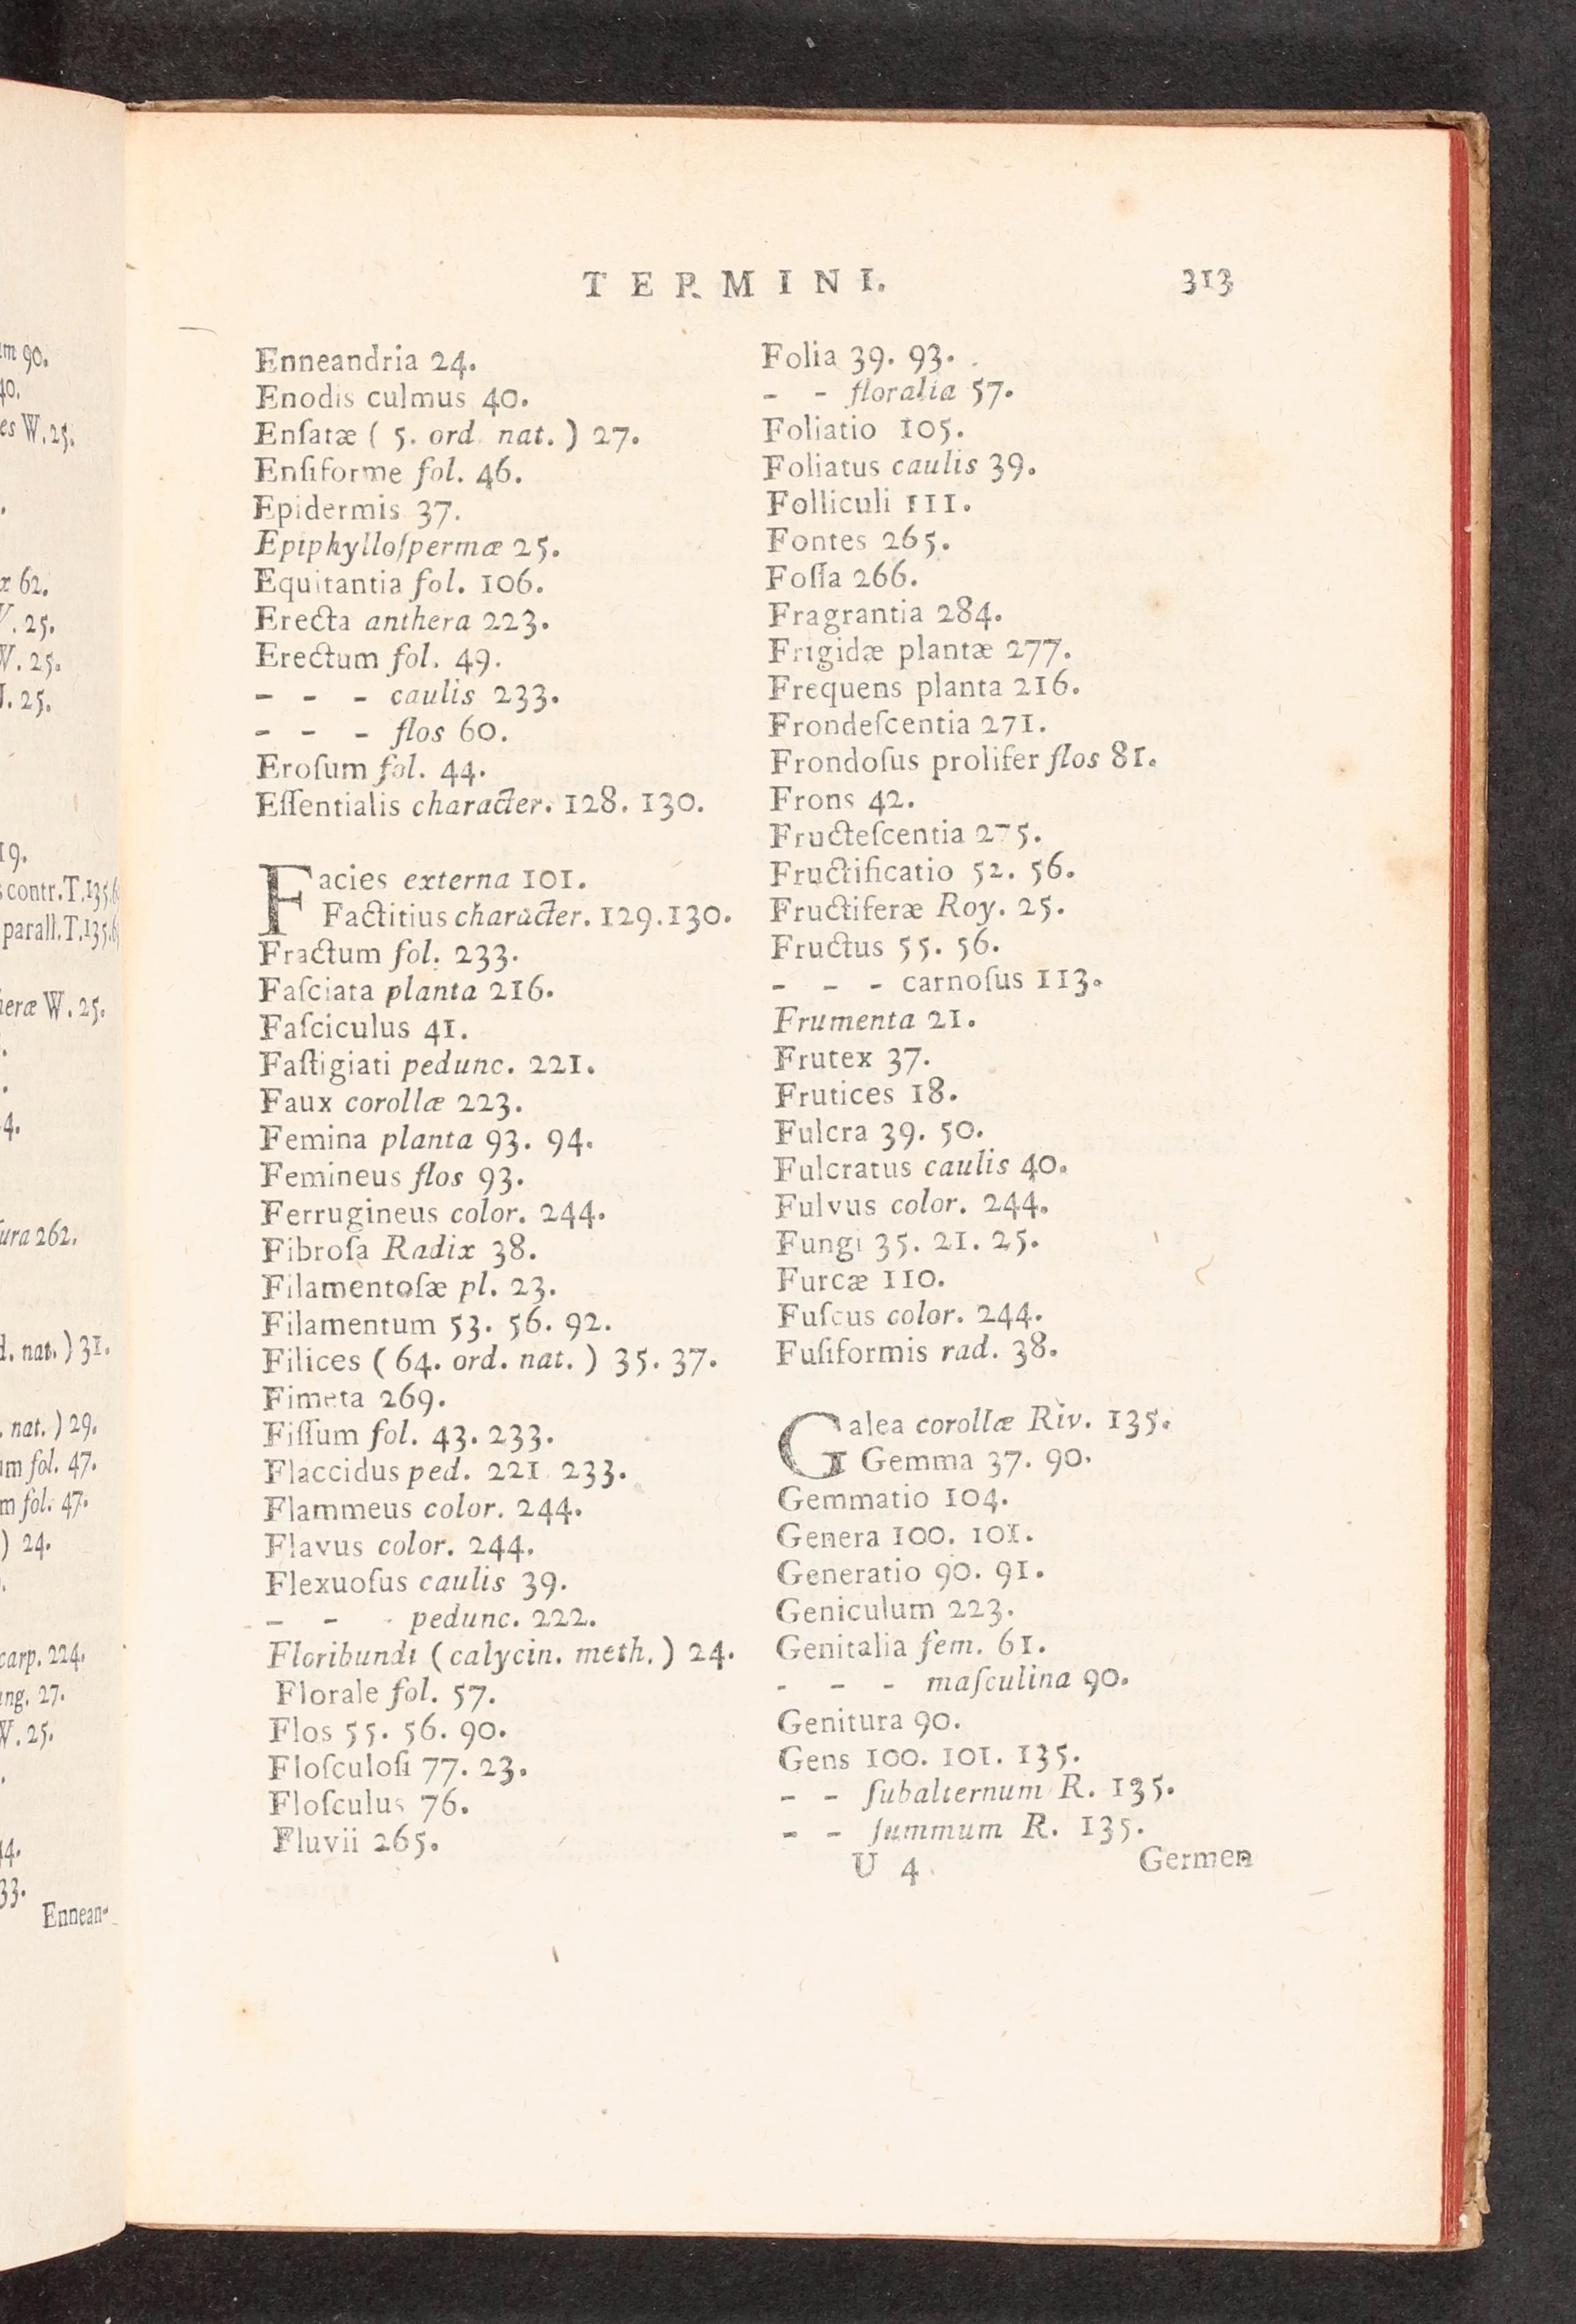 TERMINI. 313
Enneandria 24.
Enodis culmus 40.
Enſatæ ( 5. ord. nat. ) 27.
Enſiforme fol. 46.
Epidermis 37.
Epiphylloſpermæ 25.
Equitantia fol. 106.
Erecta anthera 223.
Erectum fol. 49.
- - - caulis 233.
- - - flos 60.
Eroſum fol. 44.
Eſſentialis character. 128. 130.
Facies externa 101.
Factitius character. 129.130.
Fractum fol. 233.
Faſciata planta 216.
Faſciculus 41.
Faſtigiati pedunc. 221.
Faux corollæ 223.
Femina planta 93. 94.
Femineus flos 93.
Ferrugineus color. 244.
Fibroſa Radix 38.
Filamentoſæ pl. 23.
Filamentum 53. 56. 92.
Filices ( 64. ord. nat. ) 35. 37.
Fimeta 269.
Fiſſum fol. 43. 233.
Flaccidus ped. 221. 233.
Flammeus color. 244.
Flavus color. 244.
Flexuoſus caulis 39.
- - - pedunc. 222.
Floribundi ( calycin. meth. ) 24.
Florale fol. 57.
Flos 55. 56. 90.
Floſculoſi 77. 23.
Floſculus 76.
Fluvii 265.
Folia 39. 93.
- - floralia 57.
Foliatio 105.
Foliatus caulis 39.
Folliculi 111.
Fontes 265.
Foſſa 266.
Fragrantia 284.
Frigidæ plantæ 277.
Frequens planta 216.
Frondeſcentia 271.
Frondoſus prolifer flos 81.
Frons 42.
Fructeſcentia 275.
Fructificatio 52. 56.
Fructiferæ Roy. 25.
Fructus 55. 56.
- - - carnoſus 113.
Frumenta 21.
Frutex 37.
Frutices 18.
Fulcra 39. 50.
Fulcratus caulis 40.
Fulvus color. 244.
Fungi 35. 21. 25.
Furcæ 110.
Fuſcus color. 244.
Fuſiformis rad. 38.
Galea corollæ Riv. 135.
Gemma 37. 90.
Gemmatio 104.
Genera 100. 101.
Generatio 90. 91.
Geniculum 223.
Genitalia fem. 61.
- - - maſculina 90.
Genitura 90.
Gens 100. 101. 135.
- - ſubalternum R. 135.
- - ſummum R. 135.
U 4 Germen